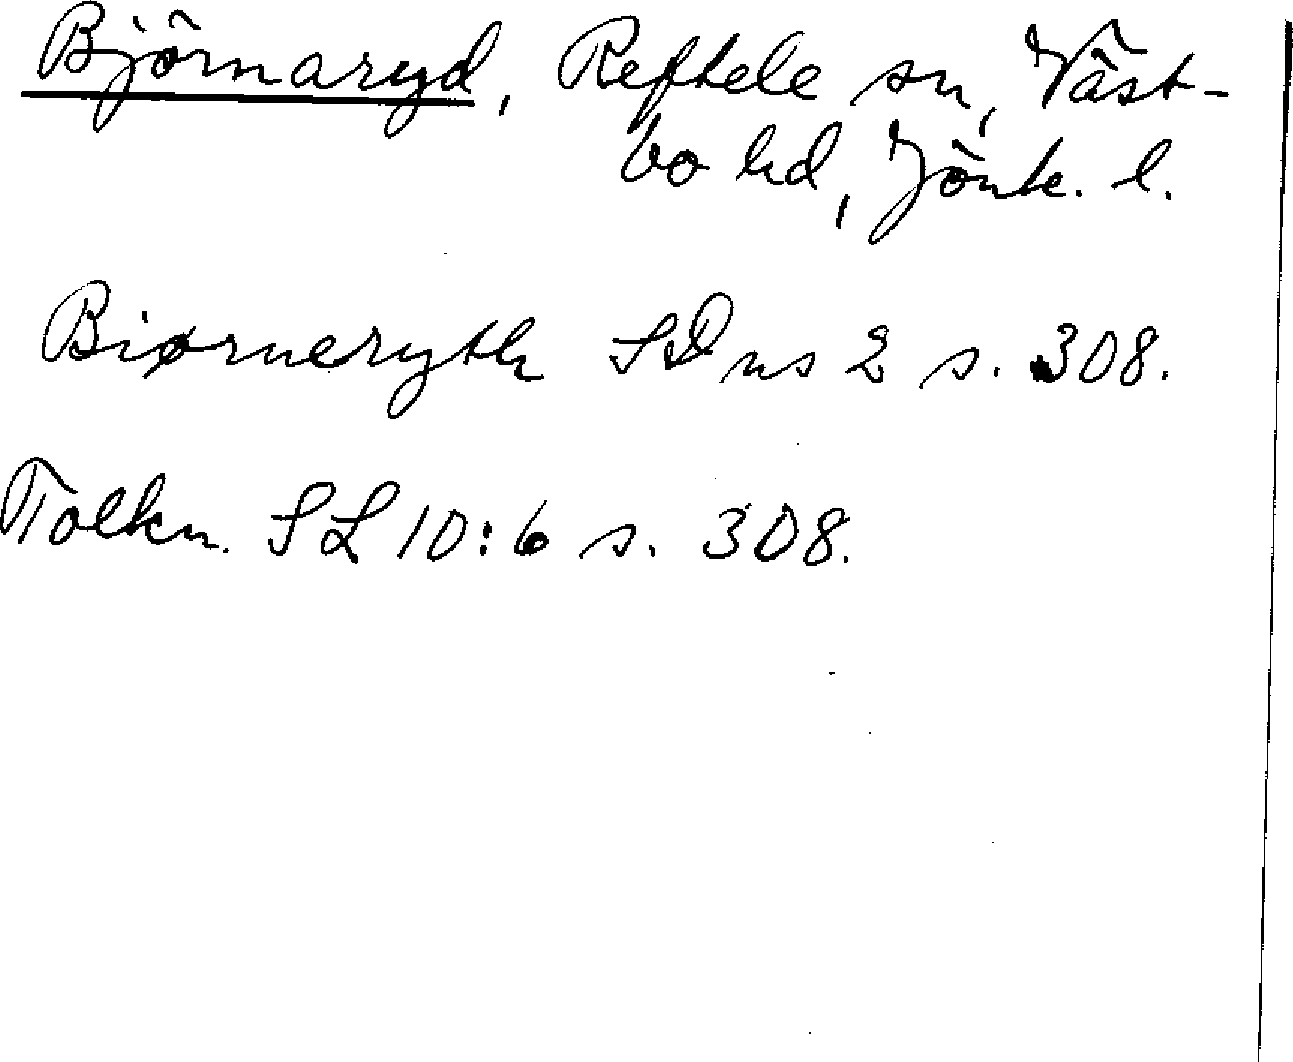 Björnaryd, Reftele sn, Väst-
bo hd, Jönk. l.
Biørneryth SD ns 2 s. 308.
Tolkn. SL 10:6 s. 308.